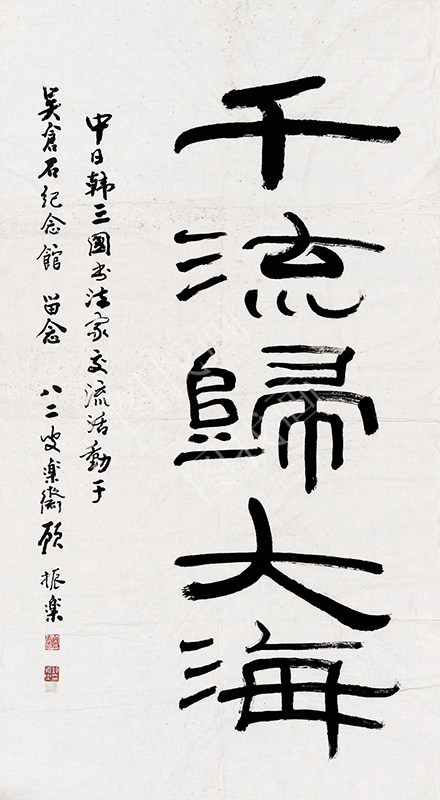 千流歸大海
中日韩三國书法家交流活動于
吴倉石纪念館 留念 八二叟樂斋 顾振樂